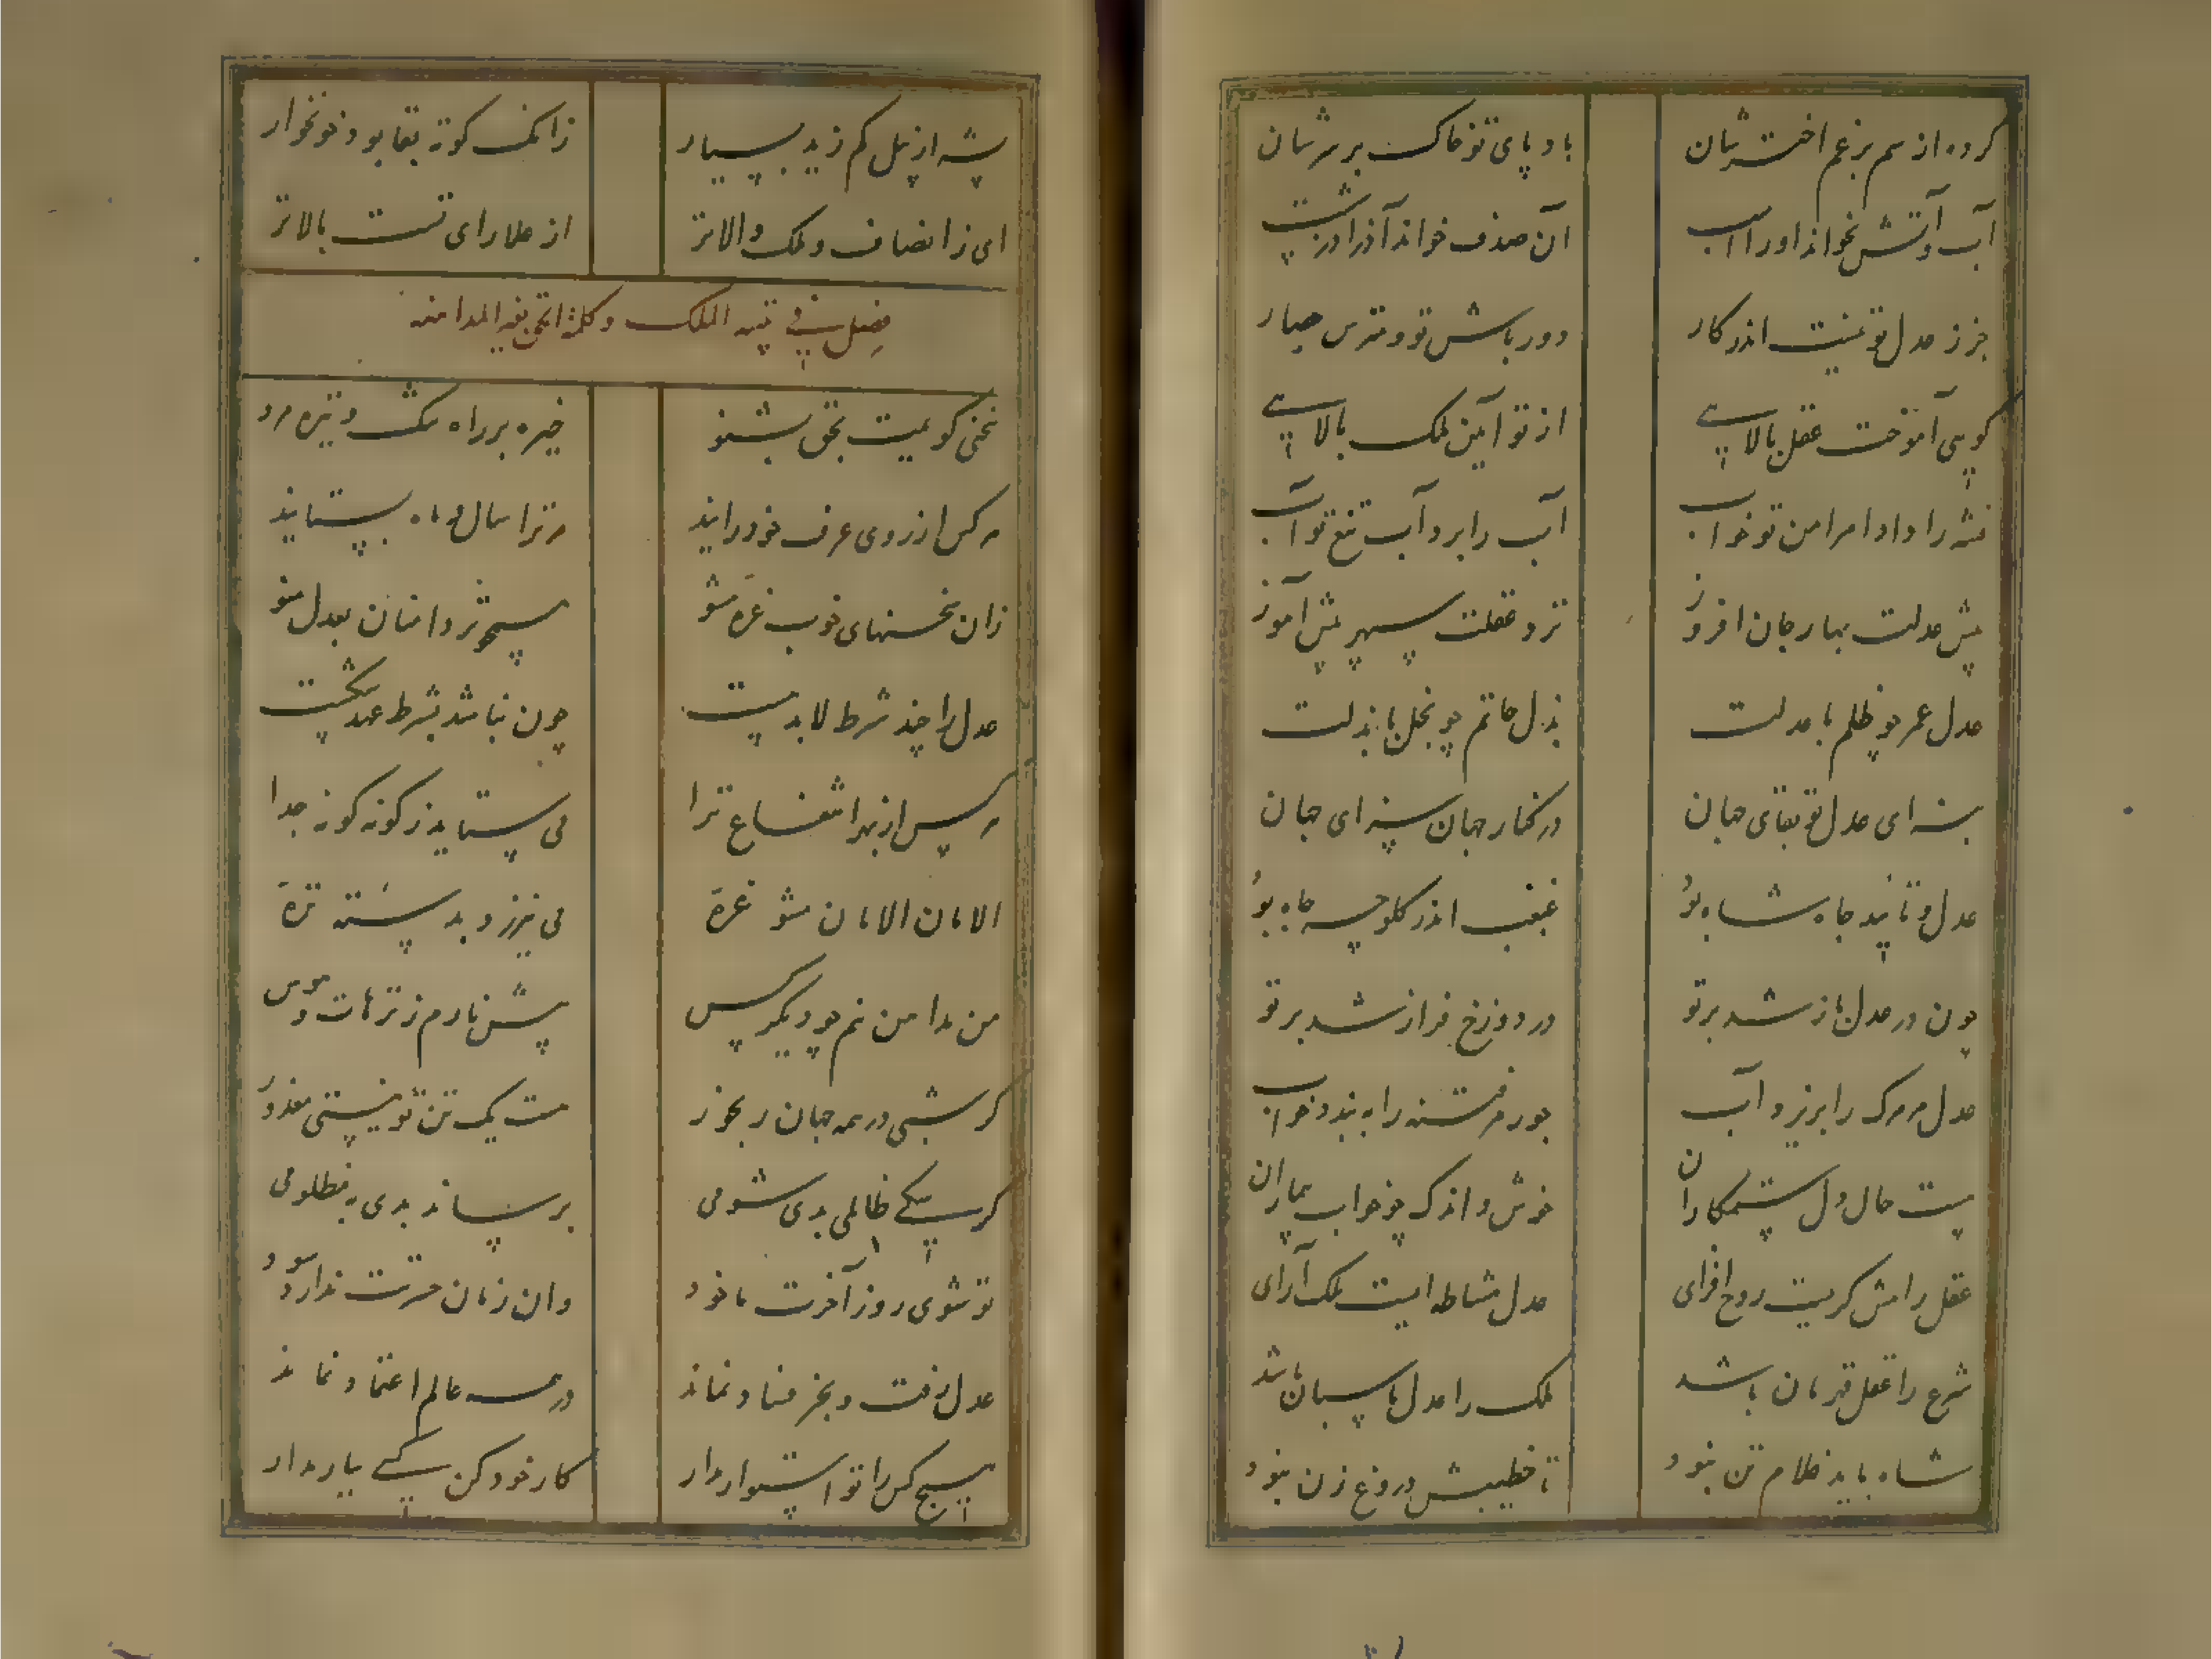 کرده از سم بزعم اخترشان باد پای تو خاک بر سرشان
آب و آتش نخواند او را اب آن صدف خواند آذرا
جز ز عدل تو نیست اندر کار دور باش تو و مترس
کوسی آموخت عقل بالایی از تو آیین ملک بالایی
فتنه را داد امر امن تو خواب آب را برد آب تیغ تو آب
پیش عدلت بهار جان افروز نزد عقلت سپهر پیش آموز
عدل عمر چو ظلم با عدلت بذل حاتم چو بخل با بذلت
بسته ای عدل تو بقای جهان در کنار جهان سزای جهان
عدل و تایید جاه شاه بود غبغب اندر کلو چه چاه بود
چون در عدل باز شد بر تو در دوزخ فراز شد بر تو
عدل هر مرک را بریزد آب جور هر فتنه را به بندد خواب
هست حال دل ستمکاران خوش و اندک چو خواب بیماران
عقل رامش کریست روح افزای عدل مشاطه ایست ملک آرای
شرع را عقل قهرمان باشد ملک را عدل پاسبان باشد
شاه باید غلام تن نبود تا خطیبش دروغ زن نبود
پشه از پیل کم زید بسیار زانک کوته بقا بود خونخوار
ای ز انصاف و ملک والاتر از علا رای تست بالاتر
فصل فی تنبیه الملک و کلمة الحق فیه المداهنة
سخنی کویمت بحق بشنو خیره بر راه مکث و تیره مرو
هر کس از روی عرف خود رایند مر ترا سال و ماه بستایند
زان سخنهای خوب غره مشو هیچو نوشروان بعدل
عدل را چند شرط لابدیست چون نباشد بشرط عهد
هر کس از بهر انتفاع ترا می ستاید ز کونه کونه جدا
الامان الامان مشو غره می نیرزد بد سته تره
من مداهن نیم چو دیگر کس پیش نارم ز ترهات هوس
کر شبی در همه جهان رنجور هست یک تن تو نیستی معذور
کر سکی ظالمی بدی شومی برساند بدی به مظلومی
تو شوی روز آخرت ماخوذ وان زمان حسرتت ندارد سود
عدل رفت و بجز فساد نماند در همه عالم اعتماد نماند
هیچ کس را تو استوار مدار کار خود کن کسی بیار مدار